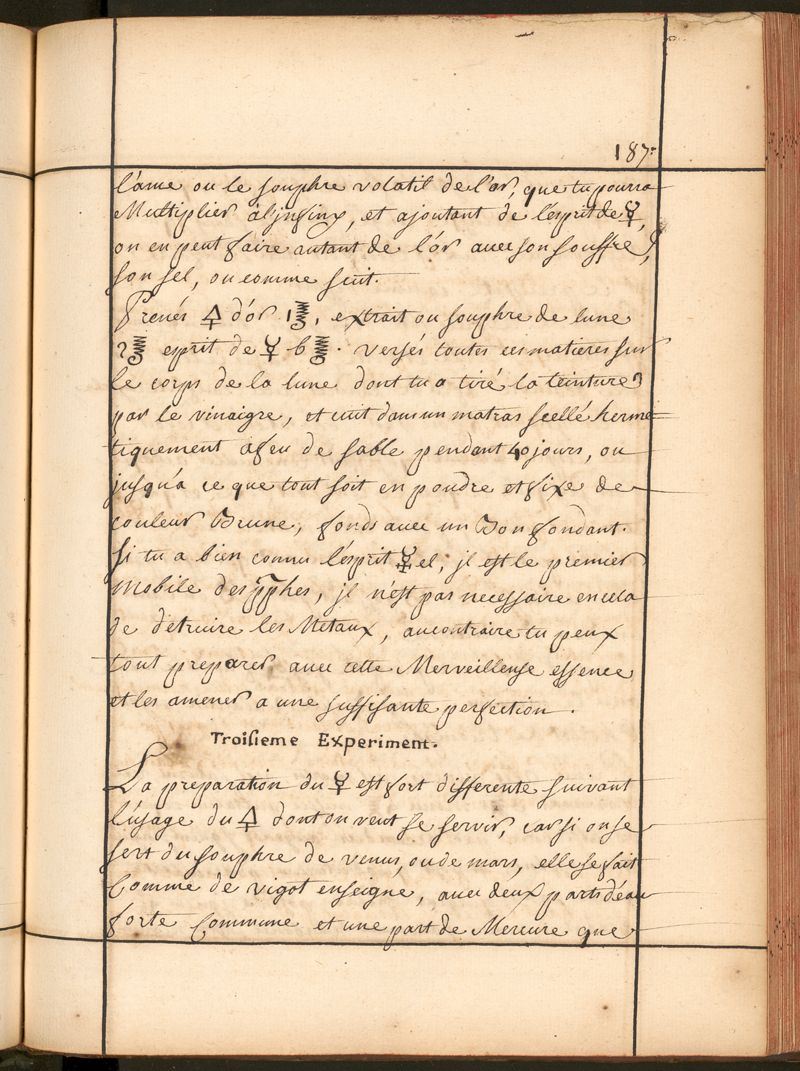 187.
l'ame ou le souphre volatil de l'or, que tu pourra
Multiplier à l'jnfiny, et ajoutant de l'esprit de ☿,
on en peut faire autant de l'or avec son souffre,
son sel, ou comme suit.
Prenés 🜍 d'or 1 , extrait ou souphre de lune
2 esprit de ☿ 6 . versés toutes ces matieres sur
le corps de la lune dont tu a tiré la teinture
par le vinaigre, et cuit dans un matras scellé herme
tiquement a feu de sable pendant 40 jours, ou
jusqu'a ce que tout soit en poudre et fixe de
couleur Brune, fonds avec un Bon fondant.
si tu a bien connu l'esprit ☿el, jl est le premier
Mobile des pphes, jl n'est pas necessaire en cela
de detruire les Metaux, au contraire tu peux
tout preparer avec cette Merveilleuse essence
et les amener a une suffisante perfection.
Troisieme Experiment.
La preparation du ☿ est fort differente suivant
l'usage du 🜍 dont on veut se servir, car si on se
sert du souphre de venus, ou de mars, elle se fait
Comme de vigot enseigne, avec deux parts d'eau
forte Commune et une part de Mercure que